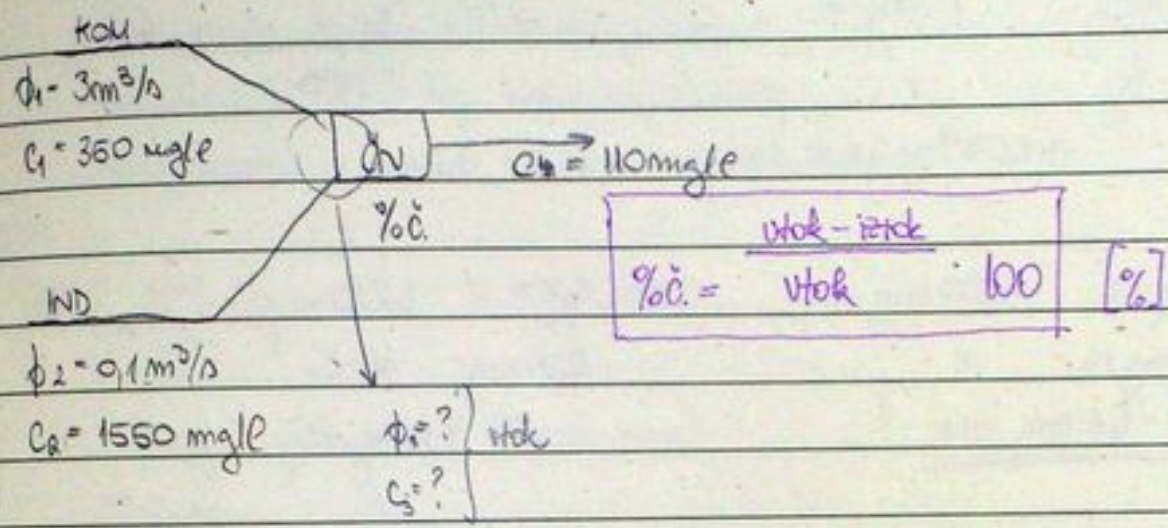 KOM
ϕ₁ = 3m³/s
C₁ = 350 mg/l
ČN
C₄ = 110 mg/l
%č.
vtok - iztok
%č. = vtok · 100 [%]
IND
ϕ₂ = 0,1 m³/s
C₂ = 1550 mg/l
ϕ₃ = ? vtok
C₃ = ?